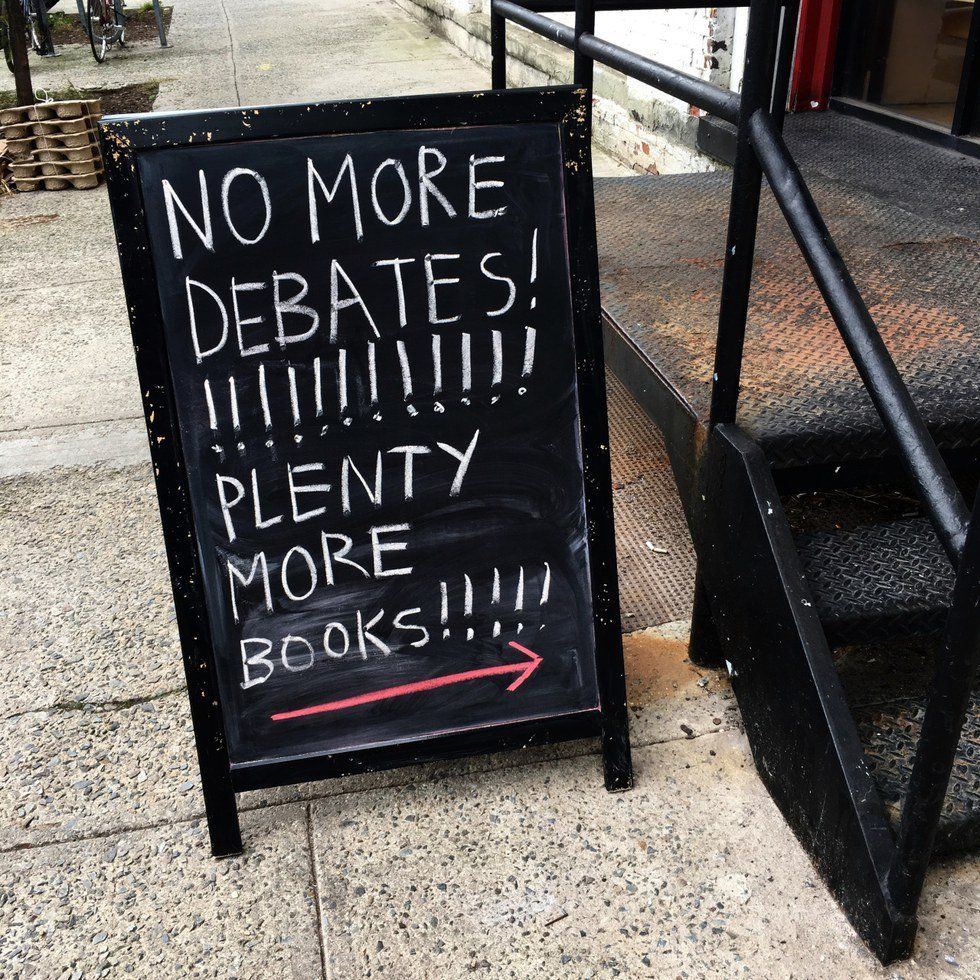 NO MORE
DEBATES!
!!!!!!!!!!!!
PLENTY
MORE
BOOKS!!!!!